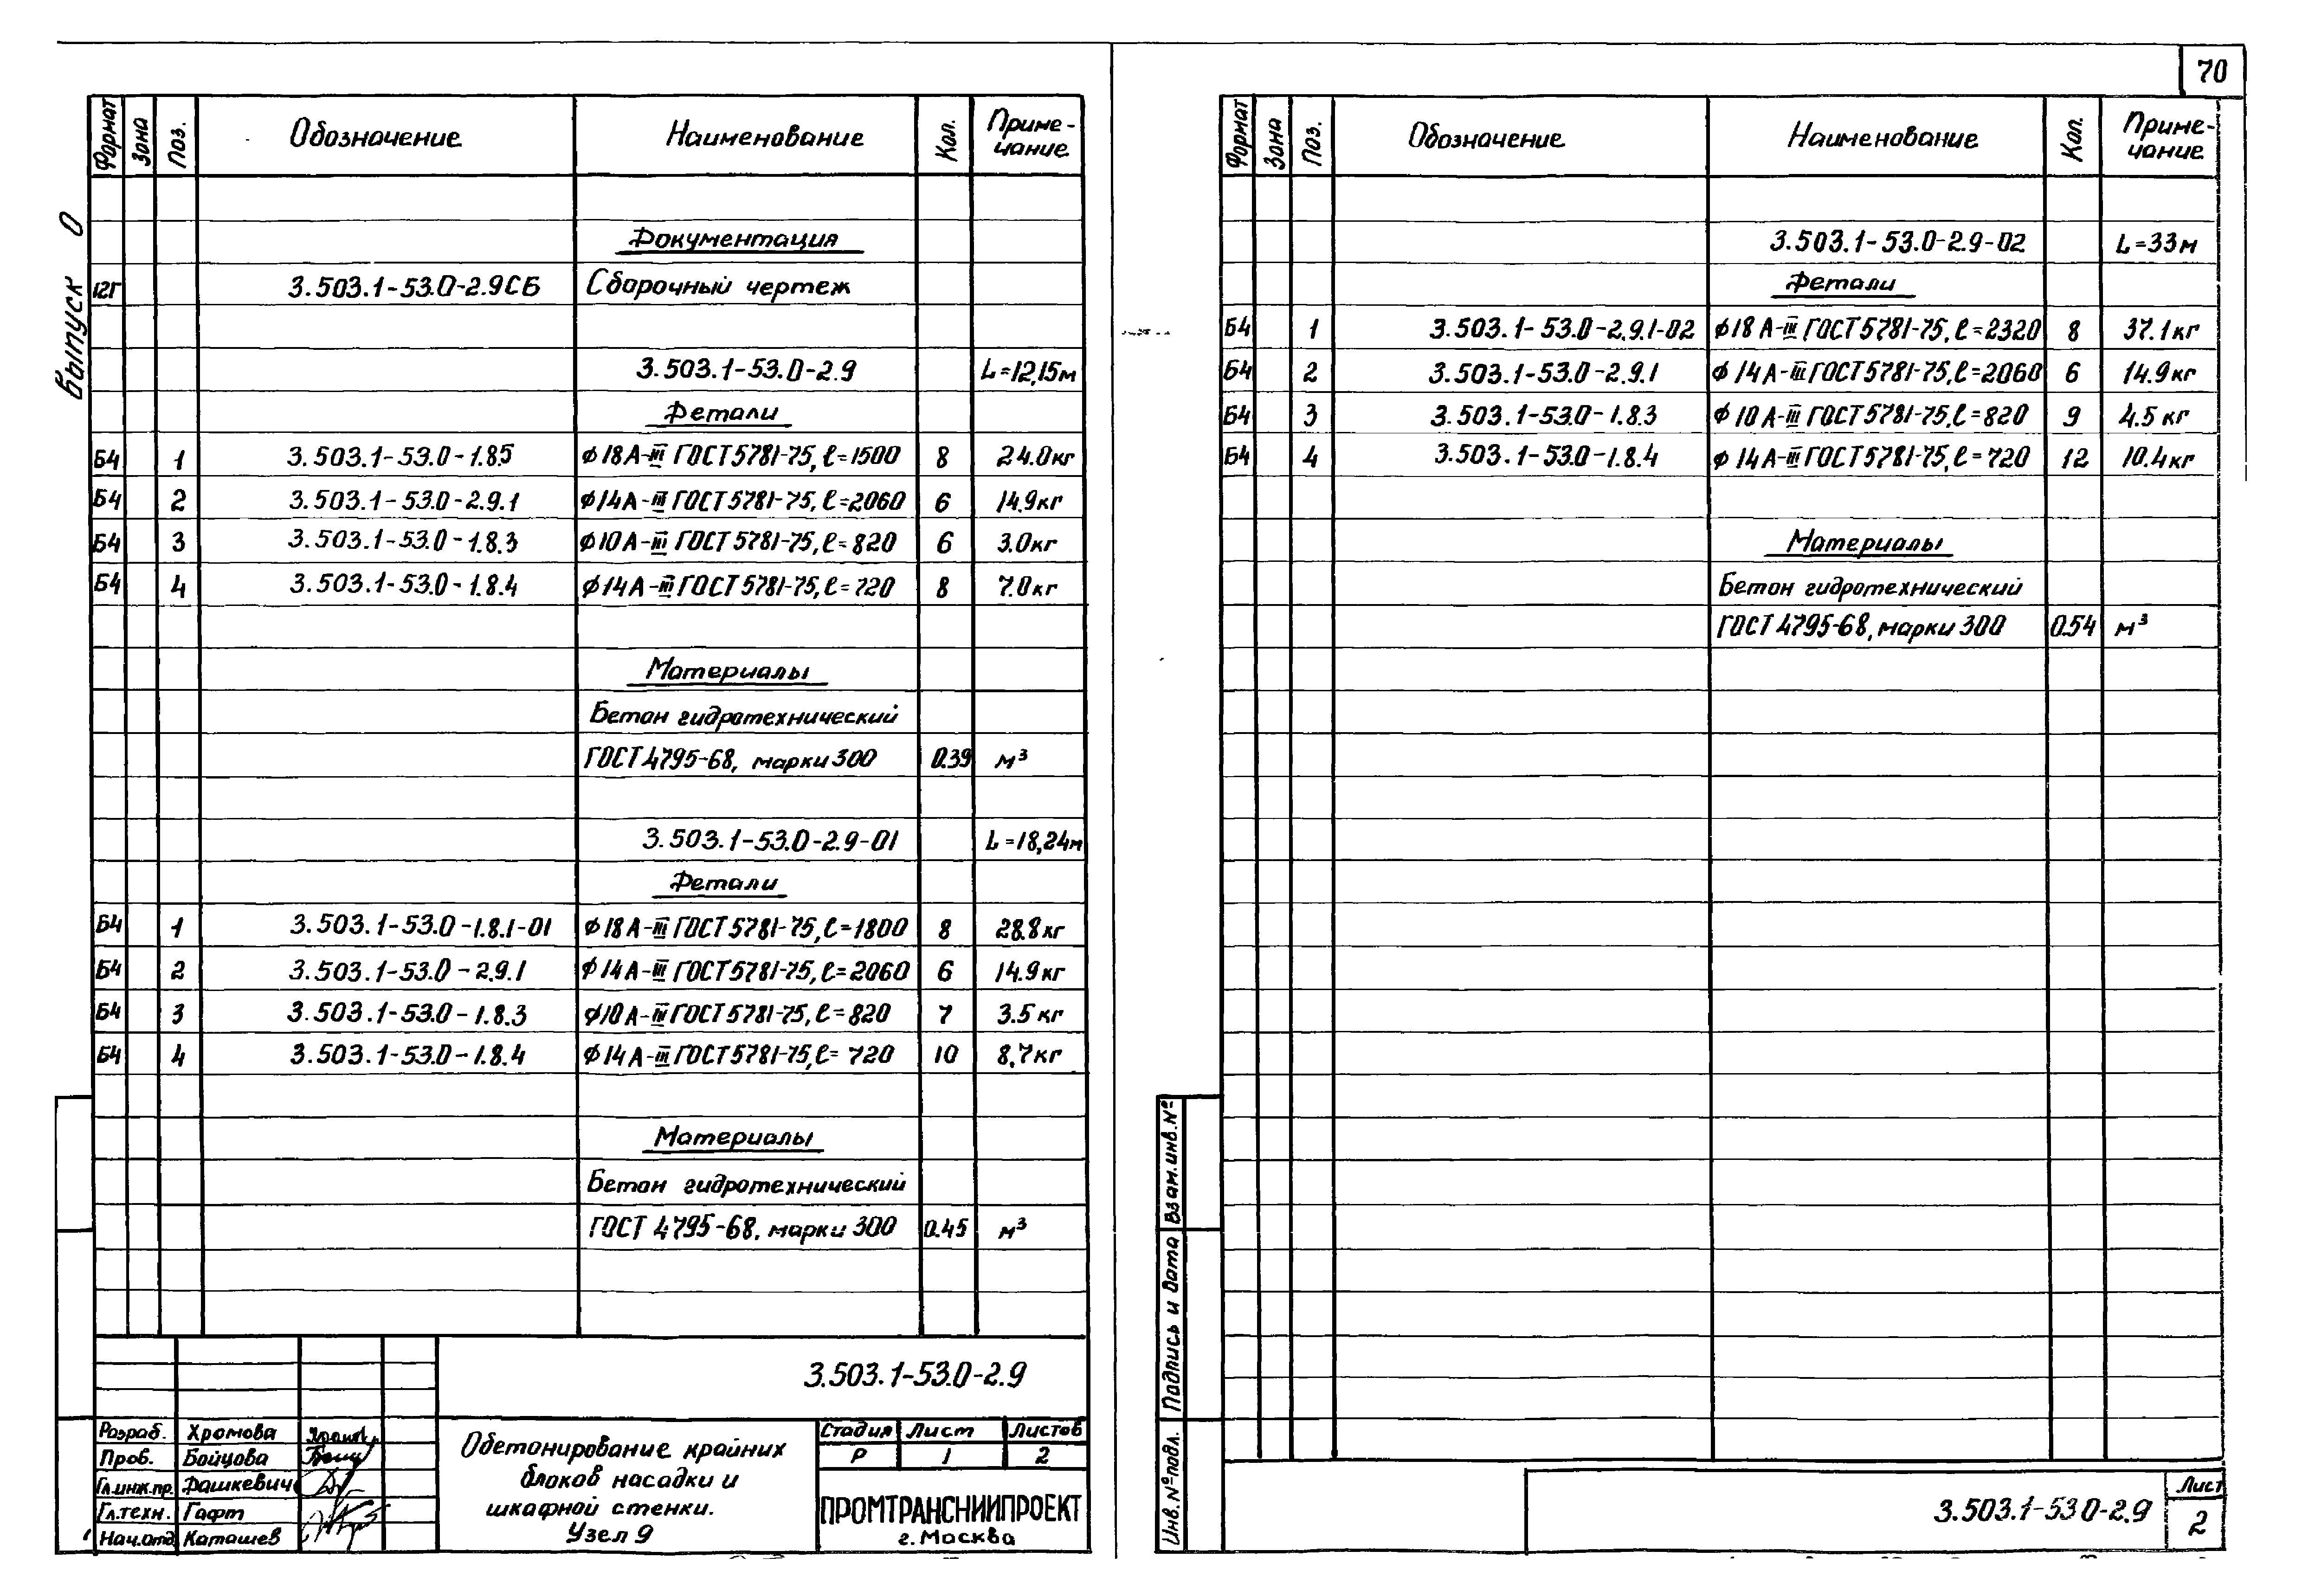 70
Выпуск 0
Формат Зона Поз. Обозначение Наименование Кол. Приме-
чание
Документация
12Г 3.503.1-53.0-2.9СБ Сборочный чертеж
3.503.1-53.0-2.9 L=12,15м
Детали
Б4 1 3.503.1-53.0-1.8.5 ф18А-III ГОСТ5781-75, ℓ=1500 8 24.0кг
Б4 2 3.503.1-53.0-2.9.1 ф14А-III ГОСТ5781-75, ℓ=2060 6 14.9кг
Б4 3 3.503.1-53.0-1.8.3 ф10А-III ГОСТ5781-75, ℓ=820 6 3.0кг
Б4 4 3.503.1-53.0-1.8.4 ф14А-III ГОСТ5781-75, ℓ=720 8 7.0кг
Материалы
Бетон гидротехнический
ГОСТ4795-68, марки 300 0.39 м³
3.503.1-53.0-2.9-01 L=18,24м
Детали
Б4 1 3.503.1-53.0-1.8.1-01 ф18А-III ГОСТ5781-75, ℓ=1800 8 28.8кг
Б4 2 3.503.1-53.0-2.9.1 ф14А-III ГОСТ5781-75, ℓ=2060 6 14.9кг
Б4 3 3.503.1-53.0-1.8.3 ф10А-III ГОСТ5781-75, ℓ=820 7 3.5кг
Б4 4 3.503.1-53.0-1.8.4 ф14А-III ГОСТ5781-75, ℓ=720 10 8,7кг
Материалы
Бетон гидротехнический
ГОСТ 4795-68, марки 300 0.45 м³
3.503.1-53.0-2.9
Разраб. Хромова
Пров. Бойцова
Гл.инж.пр. Дашкевич
Гл.техн. Гафт
Нач.отд Каташев
Обетонирование крайних
блоков насадки и
шкафной стенки.
Узел 9
Стадия Лист Листов
Р 1 2
ПРОМТРАНСНИИПРОЕКТ
г.Москва
Формат Зона Поз. Обозначение Наименование Кол. Приме-
чание
3.503.1-53.0-2.9-02 L=33м
Детали
Б4 1 3.503.1-53.0-2.9.1-02 ф18А-III ГОСТ5781-75, ℓ=2320 8 37.1кг
Б4 2 3.503.1-53.0-2.9.1 ф14А-III ГОСТ5781-75, ℓ=2060 6 14.9кг
Б4 3 3.503.1-53.0-1.8.3 ф10А-III ГОСТ5781-75, ℓ=820 9 4.5кг
Б4 4 3.503.1-53.0-1.8.4 ф14А-III ГОСТ5781-75, ℓ=720 12 10.4кг
Материалы
Бетон гидротехнический
ГОСТ4795-68, марки 300 0.54 м³
Взам.инв.№
Подпись и дата
Инв.№подл.
3.503.1-53 0-2.9
Лист
2